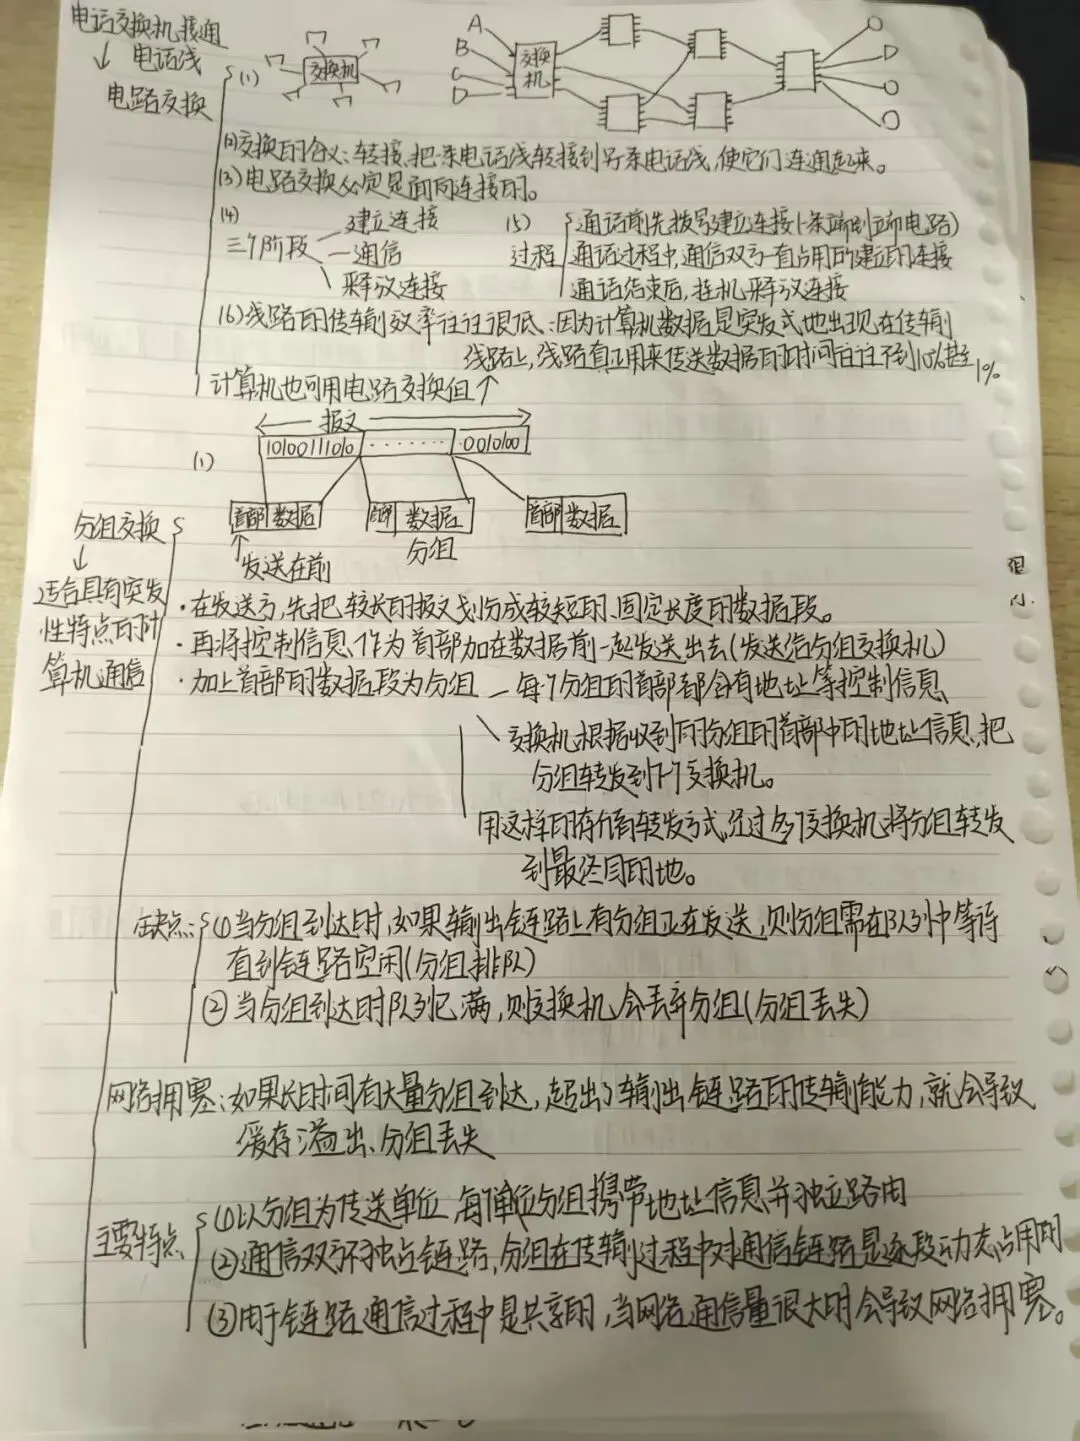 电话交换机接通
电话线
电路交换
(1)
交换机
A
B
C
D
交换机
D
(2)交换的含义:转接,把一条电话线转接到另一条电话线,使它们连通起来。
(3)电路交换必定是面向连接的。
(4)
三个阶段
建立连接
通信
释放连接
(5)
过程
通话前先拨号建立连接(一条端到端电路)
通话过程中,通信双方一直占用所建立的连接
通话结束后,挂机释放连接
(6)线路的传输效率往往很低:因为计算机数据是突发式地出现在传输
线路上,线路真正用来传送数据的时间往往不到10%甚至1%
计算机也可用电路交换但↑
报文
(1)
10100111010
······
001000
首部 数据
首部 数据
首部 数据
分组
发送在前
分组交换
适合具有突发
性特点的计
算机通信
·在发送方,先把较长的报文划分成较短的、固定长度的数据段。
·再将控制信息作为首部加在数据前一起发送出去(发送给分组交换机)
·加上首部的数据段为分组—每个分组的首部都含有地址等控制信息
交换机根据收到的分组的首部中的地址信息,把
分组转发到下一个交换机。
用这样的存储转发方式,经过多个交换机将分组转发
到最终目的地。
缺点:①当分组到达时,如果输出链路上有分组正在发送,则分组需在队列中等待
直到链路空闲(分组排队)
②当分组到达时队列已满,则交换机会丢弃分组(分组丢失)
网络拥塞:如果长时间有大量分组到达,超出了输出链路的传输能力,就会导致
缓存溢出、分组丢失
主要特点
①以分组为传送单位,每个单位分组携带地址信息并独立路由
②通信双方不独占链路,分组在传输过程中对通信链路是逐段动态占用的
③用于链路通信过程中是共享的,当网络通信量很大时会导致网络拥塞。